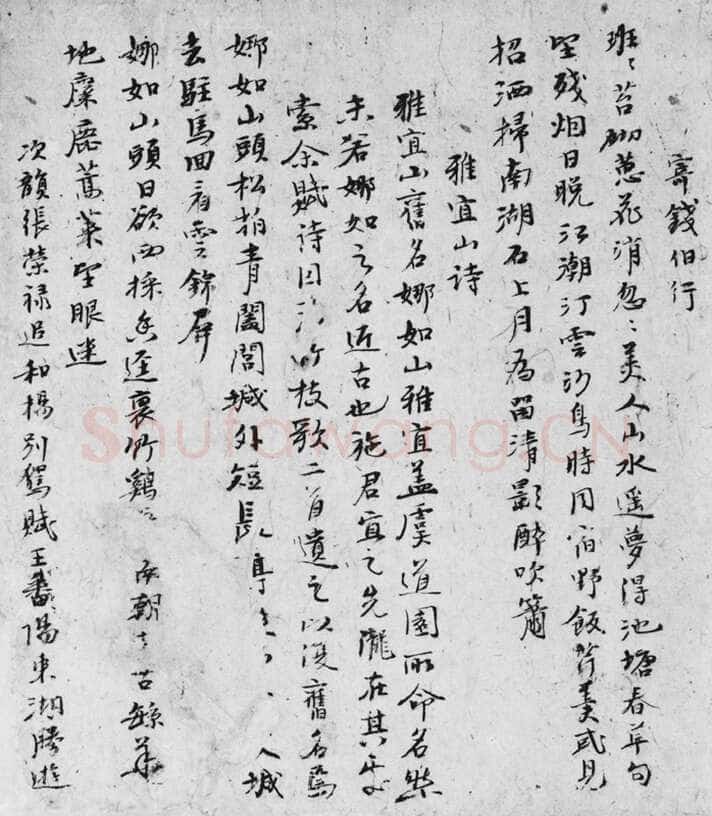 寄錢伯行
班〻苔砌蕙花消忽〻美人山水遥夢得池塘春草句
望残烟日晚江潮汀雲沙鳥時同宿野飯芹羹或見
招洒掃南湖石上月為留清影醉吹簫
雅宜山诗
雅宜山舊名娜如山雅宜盖虞道園所命名然
未若娜如之名近古也施君宜之先隴在其
索余賦詩因 竹枝歌二首遺之以復舊名焉
娜如山頭松柏青闔閭城外短長亭 入城
去駐馬回看雲錦屏
娜如山頭日欲西採香逕裏竹鷄 朝 古
地麋鹿蒿萊望眼迷
次韻張榮禄追和楊別駕賦王番陽東湖勝遊
Shufawang.CN